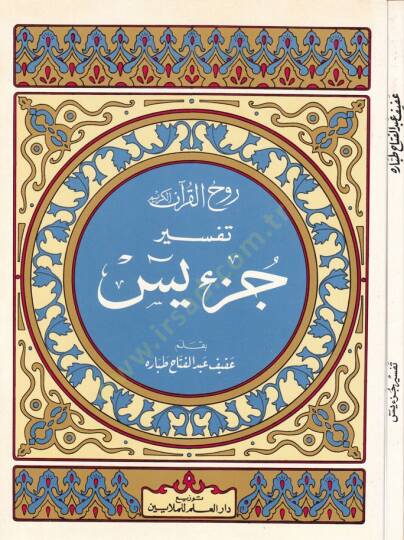 روح القرآن الكريم
تفسير
جزء يس
بقلم
عفيف عبد الفتاح طباره
توزيع
دار العلم للملايين
عفيف عبد الفتاح طباره
تفسير جزء يس